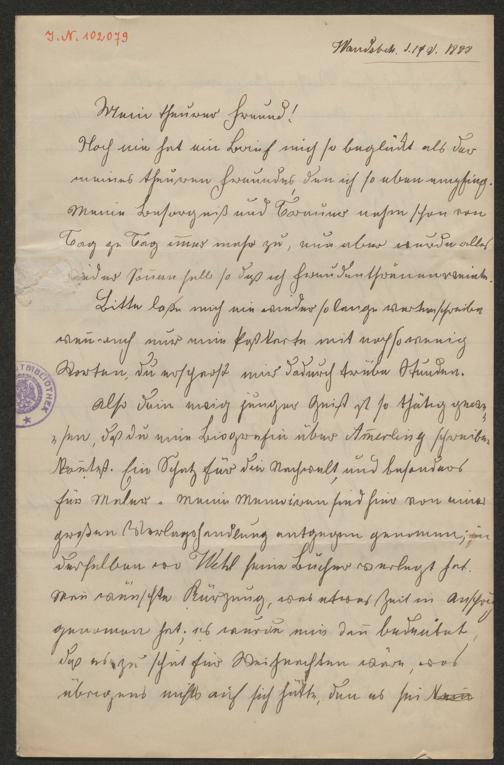 J. N. 102079
Wandsbek. d. 1880
Mein theurer Freund!
Noch nie hat ein Brief mich so beglückt als der
meines theuren Freundes, den ich so eben empfing.
Meine Besorgniß und Trauer nahm schon von
Tag zu Tag immer mehr zu, nun aber wurde alles
wieder Sonnenhell so daß ich Freudenthränen weinte.
Bitte laße mich nie wieder so lange warten, schreibe
wenn auch nur eine Postkarte mit noch so wenig
Worten, du ersparst mir dadurch trübe Stunden.
Also dein ewig junger Geist ist so thätig gewe=
=sen, daß du eine Biografie über Amerling schreiben
könntest. Ein Schatz für die Nachwelt, und besonders
für Maler. Meine Memoiren sind hier von einer
großen Verlagshandlung entgegen genommen, in
derselben wo Wehl seine Bücher verlegt hat.
Man wünschte Kürzung, was etwas Zeit in Anspruch
genommen hat, es wurde mir dann bedeutet,
daß es zu spät für Weihnachten wäre, was
übrigens nichts auf sich hätte, denn es sei
BIBLIOTHEK